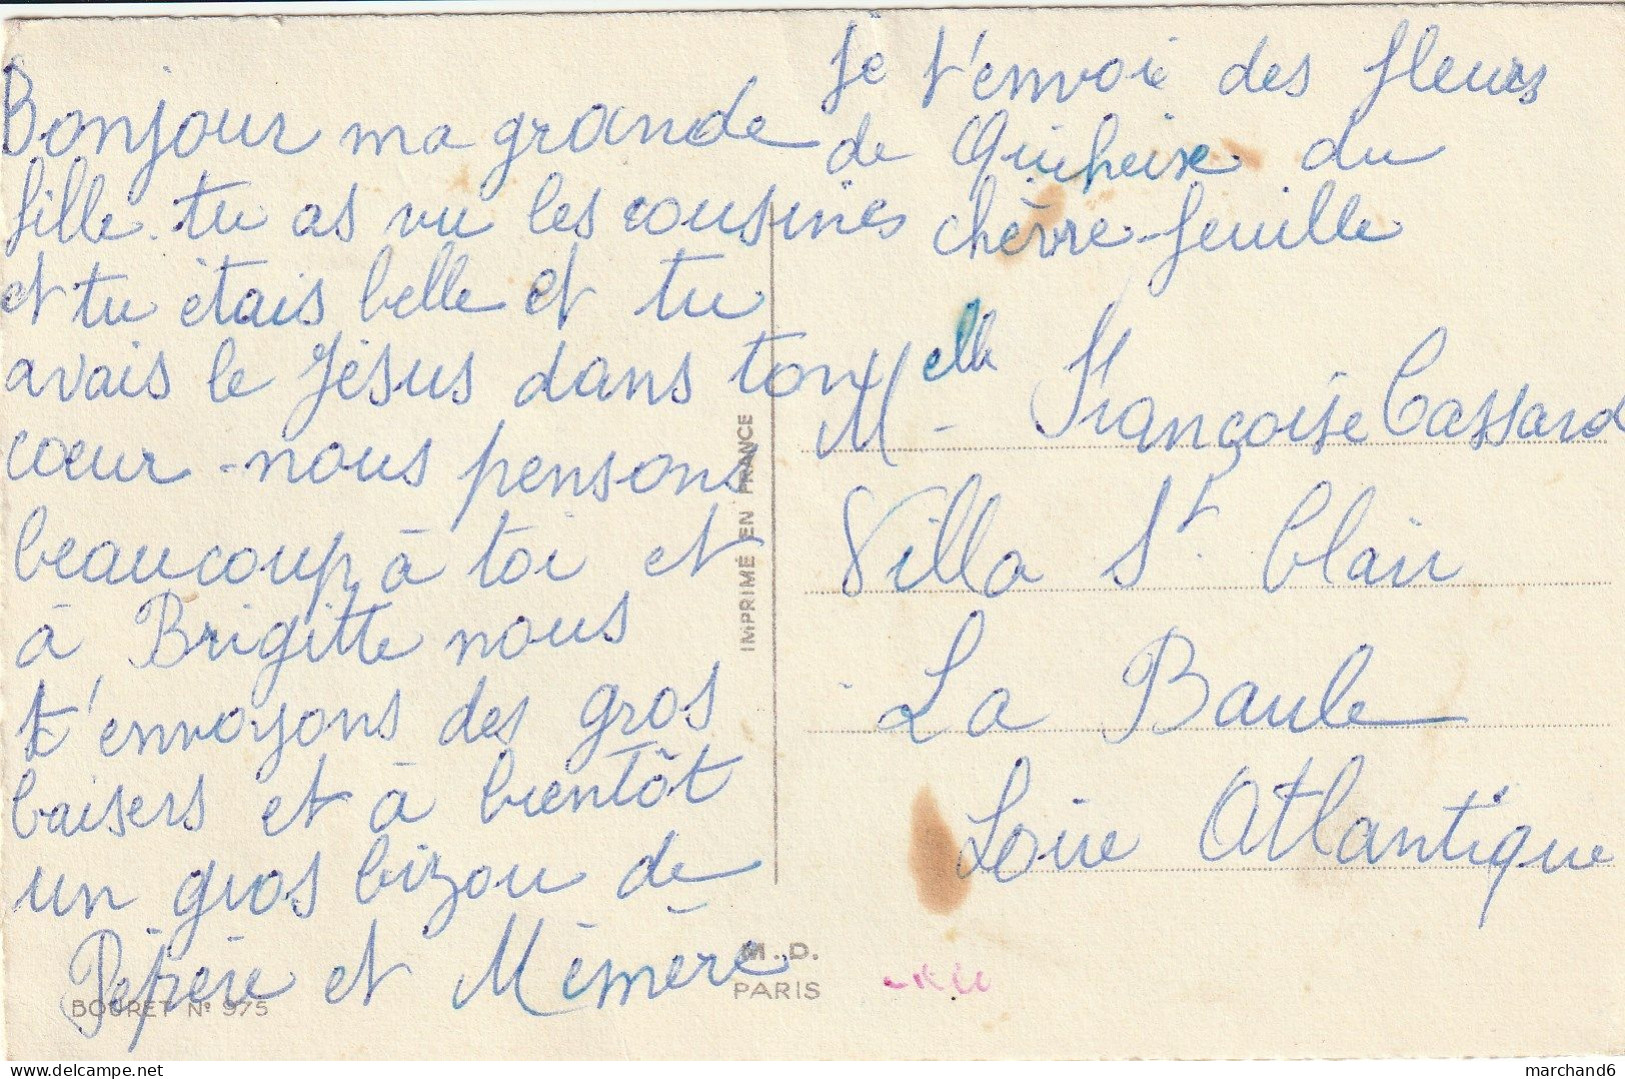 Bonjour ma grande
fille. tu as vu les cousines
et tu étais belle et tu
avais le Jésus dans ton
cœur - nous pensons
beaucoup à toi et
à Brigitte nous
t'envoyons des gros
baisers et à bientôt
un gros bizou de
Pépère et Mémère
Je t'envoie des fleurs
de Quiheix du
chèvre-feuille
Melle Françoise Cassard
Villa St. Clair
La Baule
Loire Atlantique
IMPRIMÉ EN FRANCE
M.D.
PARIS
BOURET No 975
marchand6